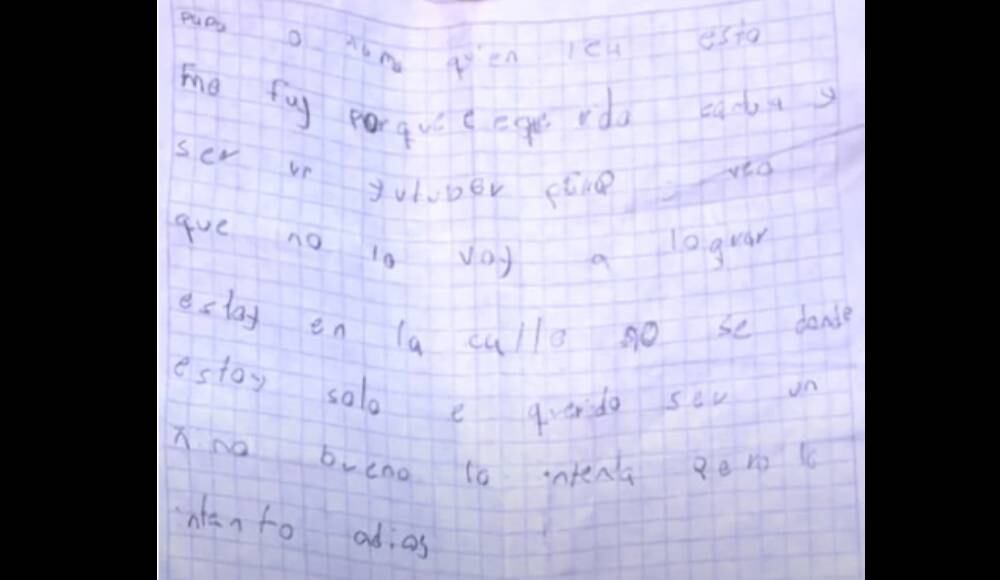 papa o mama quien lea esto
me fuy porque e equerido cambia y
ser un yutuber veo
que no lo voy a lograr
estoy en la calle no se donde
estoy solo e querido ser un
nino bueno lo intenta pero lo
intento adios